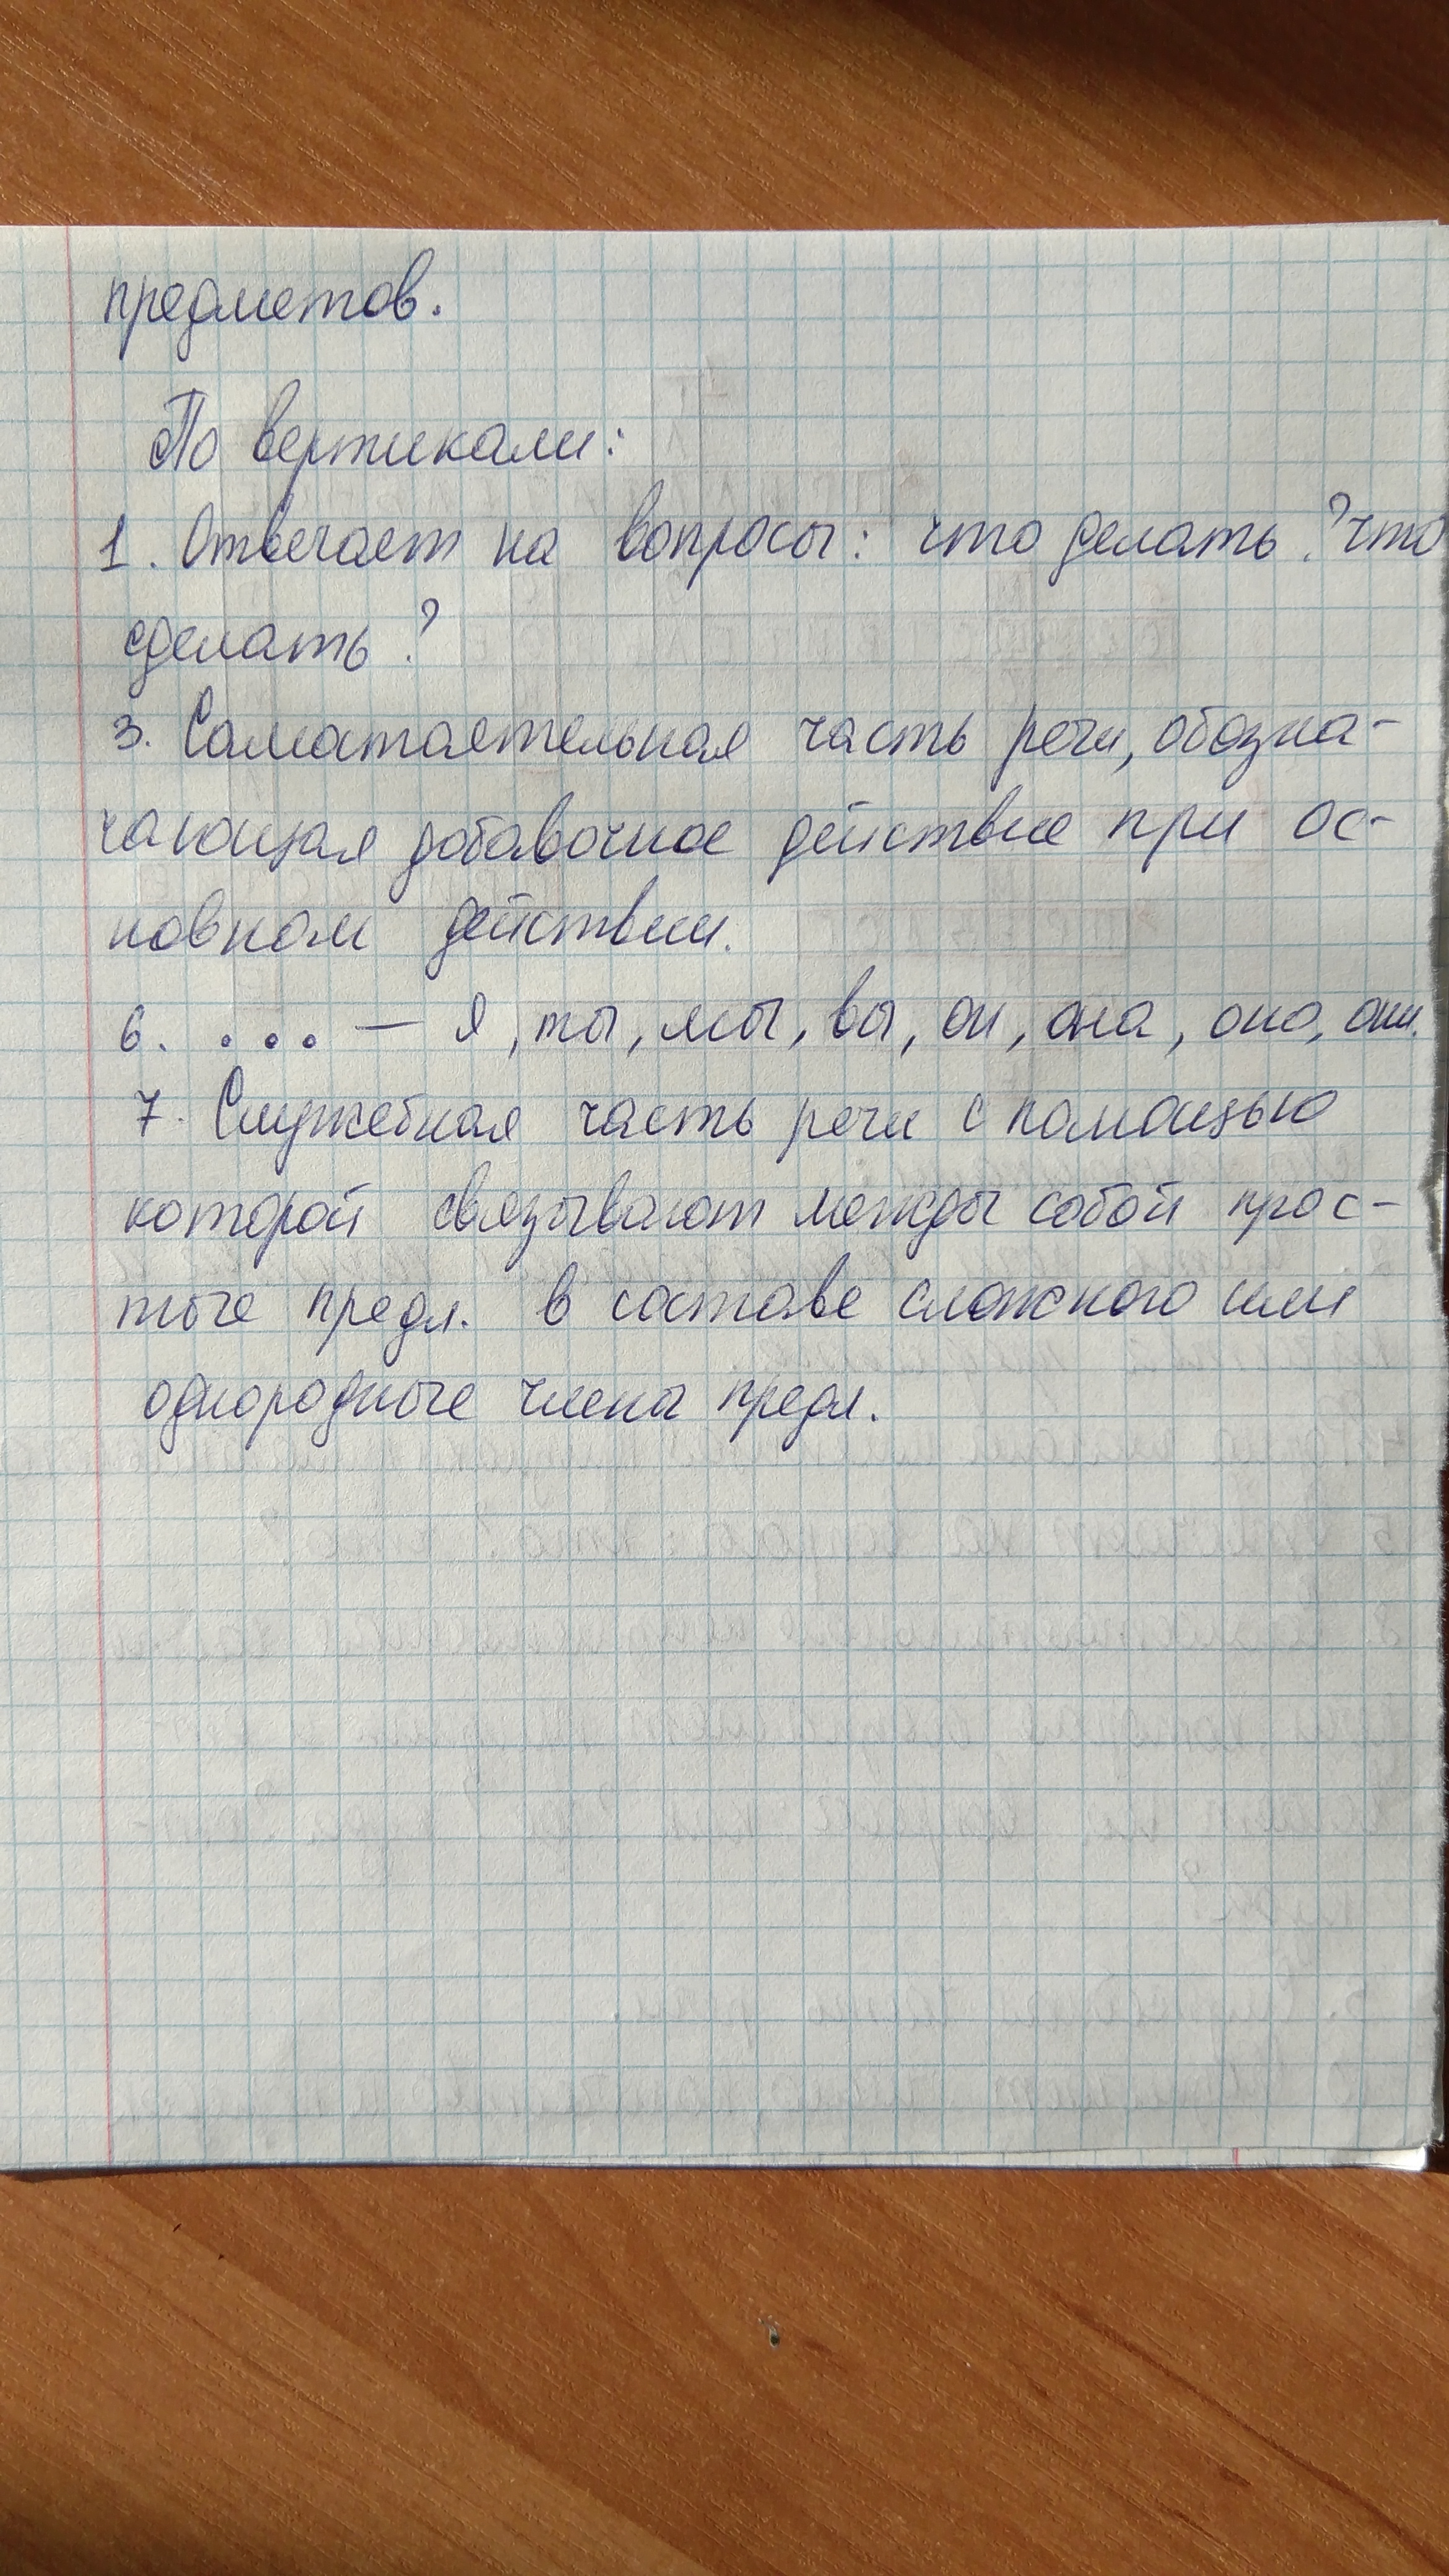 предметов.
По вертикали:
1. Отвечает на вопросы: что делать? что
сделать?
3. Самостоятельная часть речи, обозна-
чающая добавочное действие при ос-
новном действии.
6. ... — Я, ты, мы, вы, он, она, оно, они.
7. Служебная часть речи с помощью
которой связывают между собой прос-
тые предл. в составе сложного или
однородные члены предл.